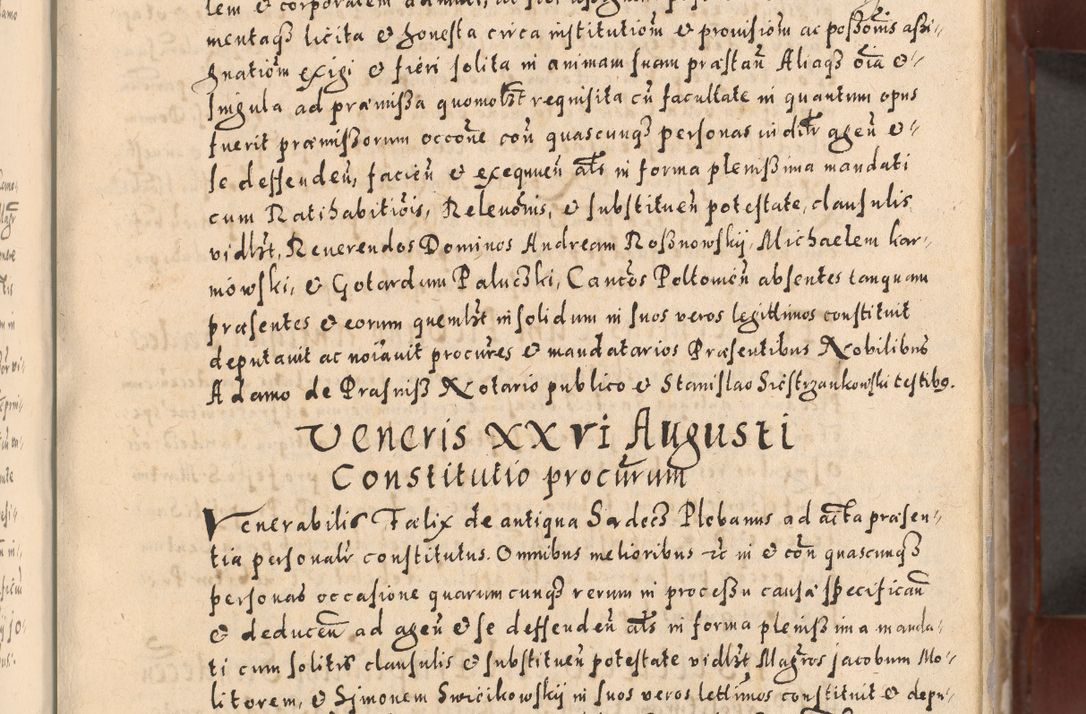 mentaqȝ licita & honesta circa institutiom̃ & prouisiom̃ ac poßõnis aßi-
gnatiom̃ exigi & fieri solita in animam suam præstañ Aliaqȝ oĩa &
singula ad præmißa quomolt requisita cũ facultate in quantum opus
fuerit præmißorum occõne coñ quascunqȝ personas in ditr ageñ &
se deffendeñ, facieñ & exequueñ als in forma plenißima mandati
cum Ratihabitiõis, Releuõnis, & substitueñ potestate, clausulis
vidlzt, Reuerendos Dominos Andream Roßnowskij, Michaelem kar-
niowski, & Gotardum Paluczki, Cantos Poltouieñ absentes tanquam
præsentes & eorum quemlzt in solidum in suos veros legittimos constituit
deputauit ac noiauit procures & mandatarios Præsentibus Nobilibus
Adamo de Prasniß Notario publico & Stanislao Sicstrzankowski testibꝯ.
Veneris XXVI Augusti
Constitutio procurum
Venerabilis Fælix de antiqua Sandecz Plebanus ad acta præsen-
tia personalr constitutus. Omnibus melioribus ꝛc in & coñ quascunqȝ
personas occasione quarumcunqȝ rerum in proceßu causæ specificañ
& deduceñ ad ageñ & se deffendeñ als in forma plenißima manda-
ti cum solitis clausulis & substitueñ potestate vidlzt Magros Jacobum Mo-
litorem, & Simonem Swicikowskij in suos veros lettimos constituit & depu-